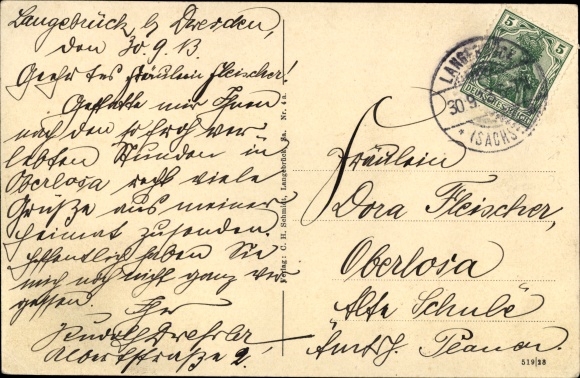 Langebrück b/ Dresden,
den 30.9.13.
Geehrtes Fräulein Fleischer!
Gestatte mir Ihnen
nach den so froh ver-
lebten Stunden in
Oberlosa recht viele
Grüße aus meiner
Heimat zusenden.
Hoffentlich haben Sie
mich noch nicht ganz ver-
gessen. Ihr
Rudolf Drechsler,
Albertstraße 2.
Verlag: C. H. Schmidt, Langebrück, Sa. Nr. 4a.
5 5
DEUTSCHES REICH
LANGEBRÜCK
30.9.
* (SACHS
Fräulein
Dora Fleischer,
Oberlosa
Alte Schule
Amtsh. Plauen.
519/28